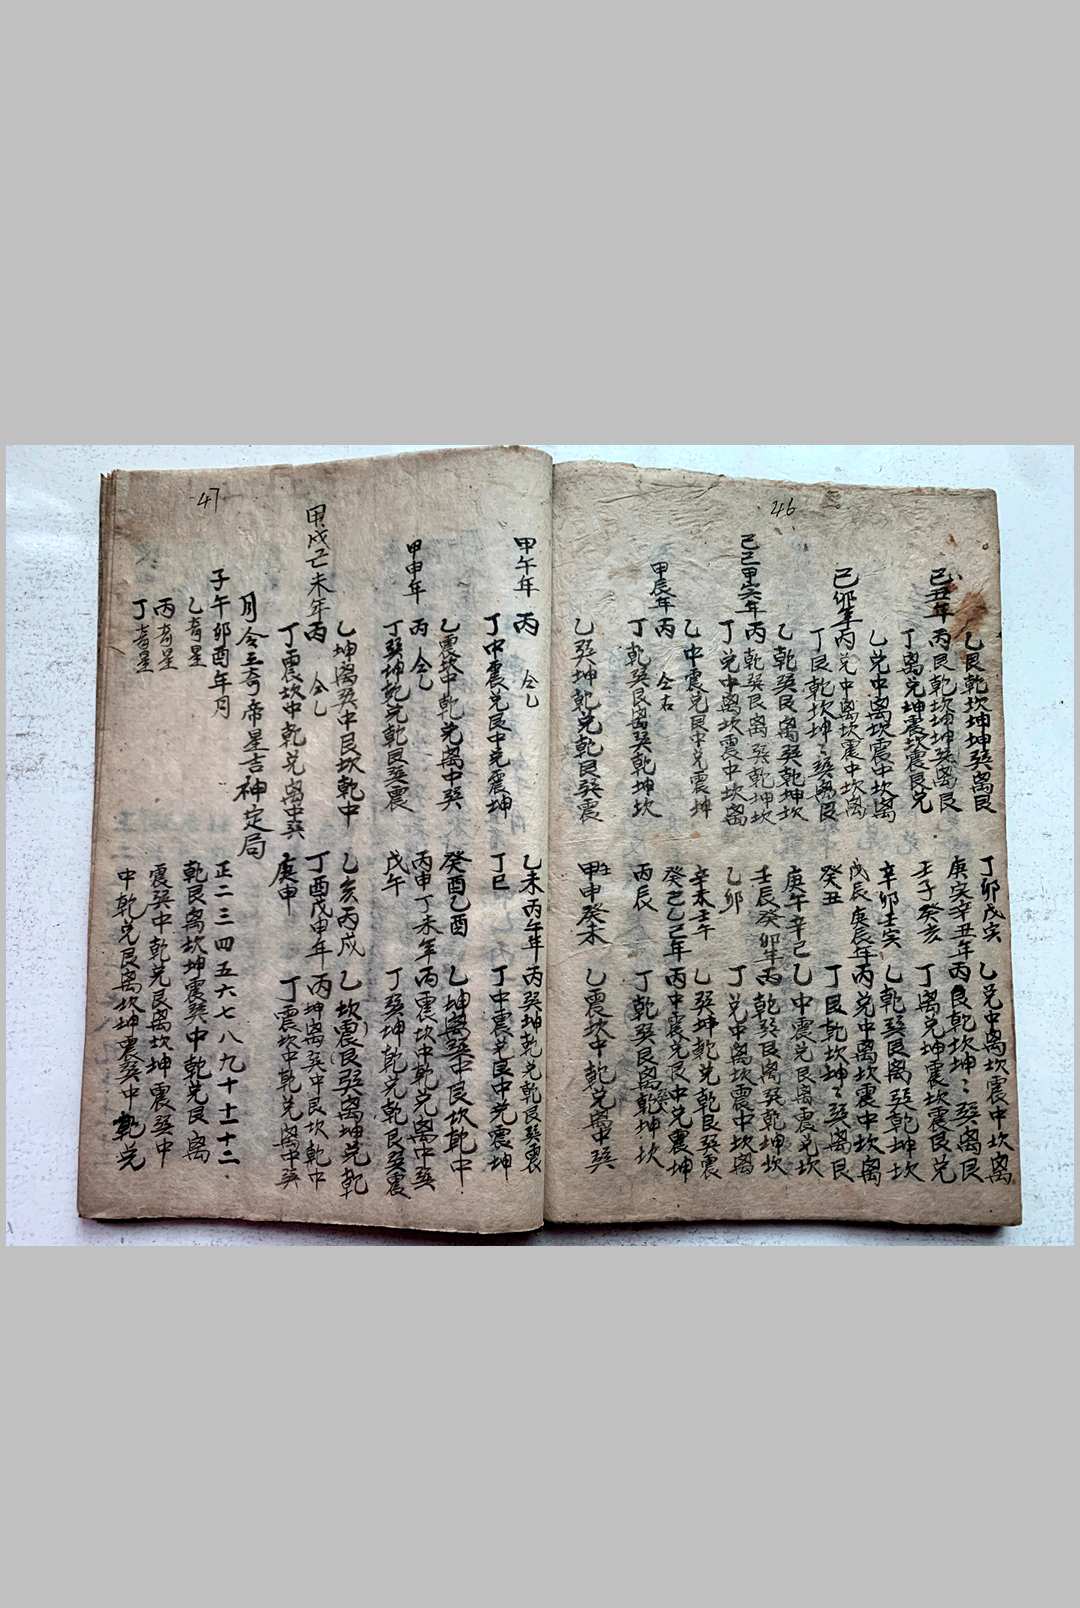 46
乙艮乾坎坤坤巽离艮
己丑年 丙艮乾坎坤坤巽离艮
丁离兑坤震坎震艮兑
乙兑中离坎震中坎离
己卯年 丙兑中离坎震中坎离
丁艮乾坎坤〻巽离艮
乙乾巽艮离巽乾坤坎
己巳甲寅年 丙乾巽艮离巽乾坤坎
丁兑中离坎震中坎离
乙中震兑艮中兑震坤
甲辰年 丙 仝右
丁乾巽艮离巽乾坤坎
乙巽坤乾兑乾艮巽震
丁卯戊寅 乙兑中离坎震中坎离
庚寅辛丑年 丙艮乾坎坤〻巽离艮
壬子癸亥 丁离兑坤震坎震艮兑
辛卯壬寅 乙乾巽艮离巽乾坤坎
戊辰庚辰年 丙兑中离坎震中坎离
癸丑 丁艮乾坎坤〻巽离艮
庚午辛巳 乙中震兑艮离震兑坎
壬辰癸卯年 丙乾巽艮离巽乾坤坎
乙卯 丁兑中离坎震中坎离
辛未壬午 乙巽坤乾兑乾艮巽震
癸巳乙巳年 丙中震兑艮中兑震坤
丙辰 丁乾巽艮离巽乾坤坎
甲申癸未 乙震坎中乾兑离中巽
47
甲午年 丙 仝乙
丁中震兑艮中兑震坤
乙震坎中乾兑离中巽
甲申年 丙 仝乙
丁巽坤乾兑乾艮巽震
乙坤离巽中艮坎乾中
甲戌己未年 丙 仝乙
丁震坎中乾兑离中巽
乙未丙午年 丙巽坤乾兑乾艮巽震
丁巳 丁中震兑艮中兑震坤
癸酉乙酉 乙坤离巽中艮坎乾中
丙申丁未年 丙震坎中乾兑离中巽
戊午 丁巽坤乾兑乾艮巽震
乙亥丙戌 乙坎震艮巽离坤兑乾
丁酉戊申年 丙坤离巽中艮坎乾中
庚申 丁震坎中乾兑离中巽
月令三奇帝星吉神定局
子午卯酉年月 正二三四五六七八九十十一十二
乙奇星 乾艮离坎坤震巽中乾兑艮离
丙奇星 震巽中乾兑艮离坎坤震巽中
丁奇星 中乾兑艮离坎坤震巽中乾兑